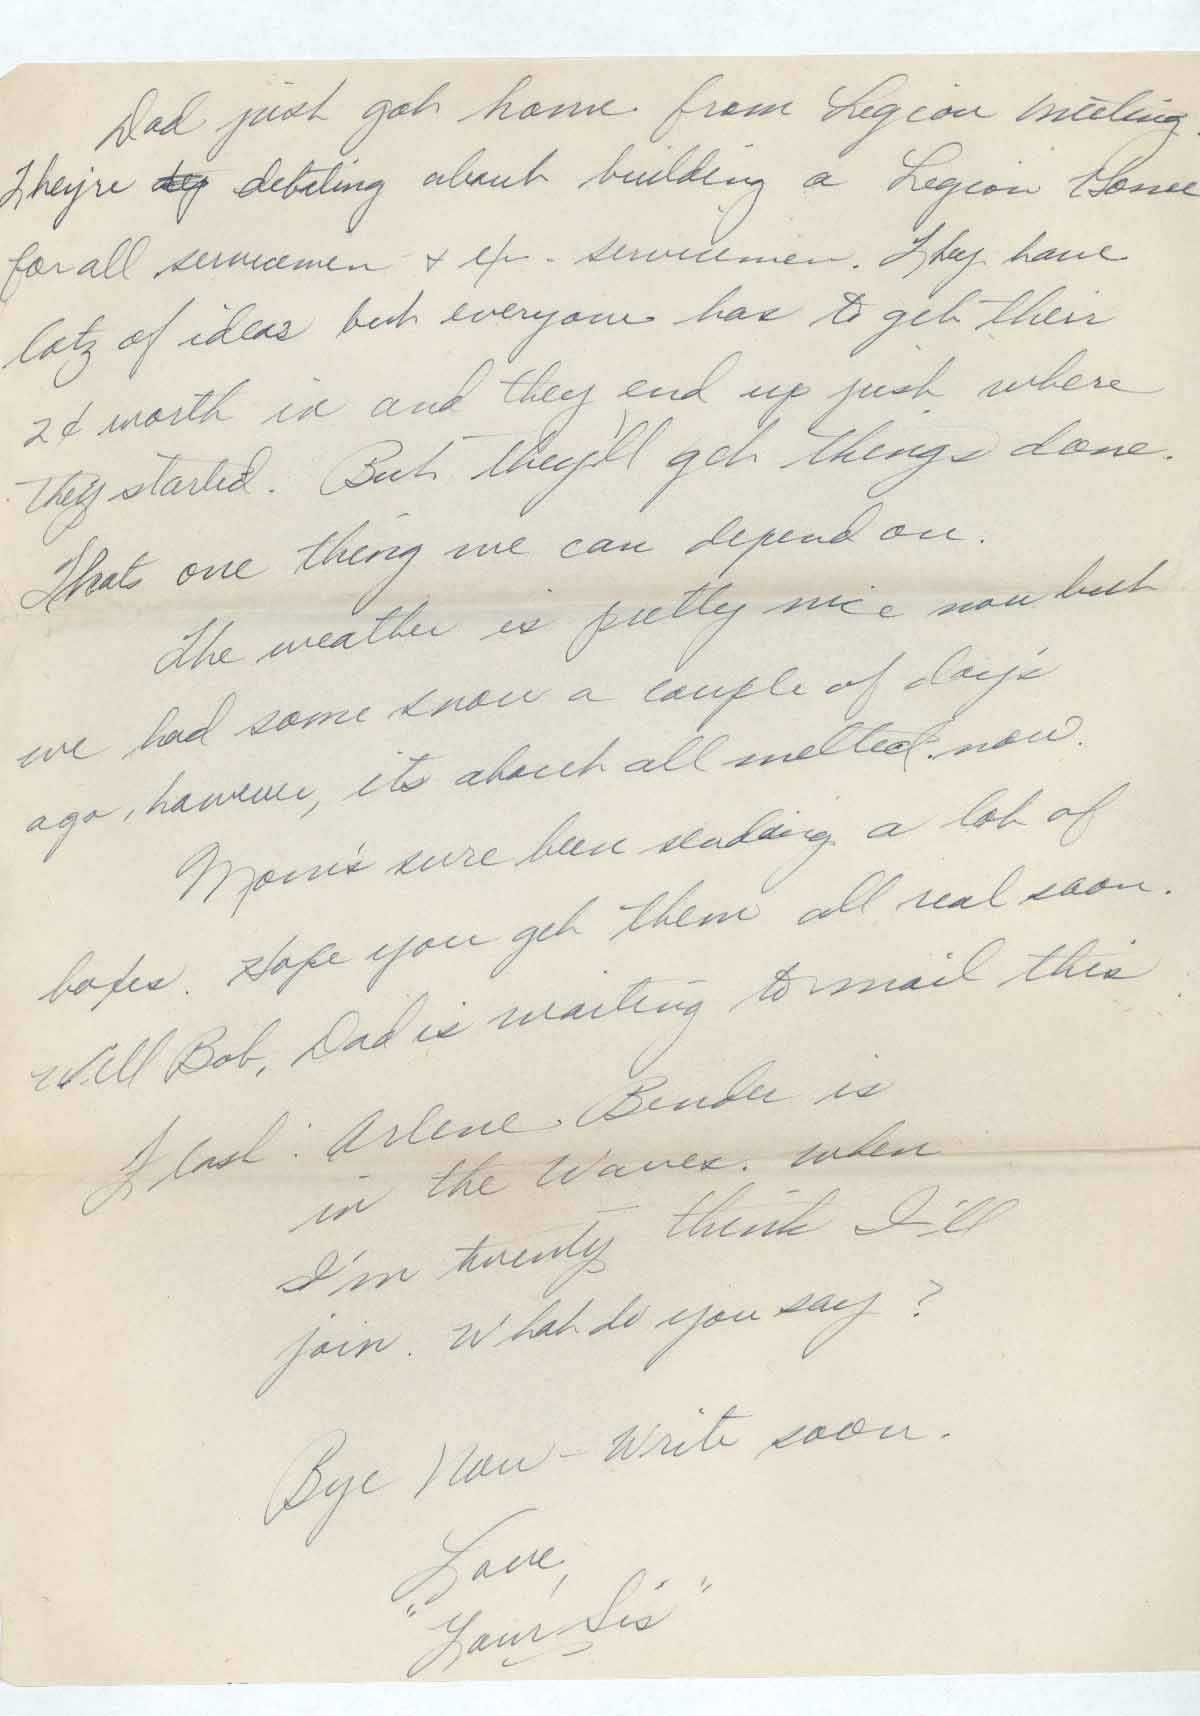 Dad just got home from Legion meeting.
They're debating about building a Legion Home
for all servicemen & ex-servicemen. They have
lotz of ideas but everyone has to get their
2¢ worth in and they end up just where
they started. But they'll get things done.
Thats one thing we can depend on.
The weather is pretty nice now but
we had some snow a couple of day's
ago, however, it's about all melted now.
Mom's sure been sending a lot of
boxes. Hope you get them all real soon.
Well Bob, Dad is waiting to mail this
Flash: Arlene Bender is
in the Waves. When
I'm twenty think I'll
join. What do you say?
Bye Now - Write soon.
Love,
"Your Sis"